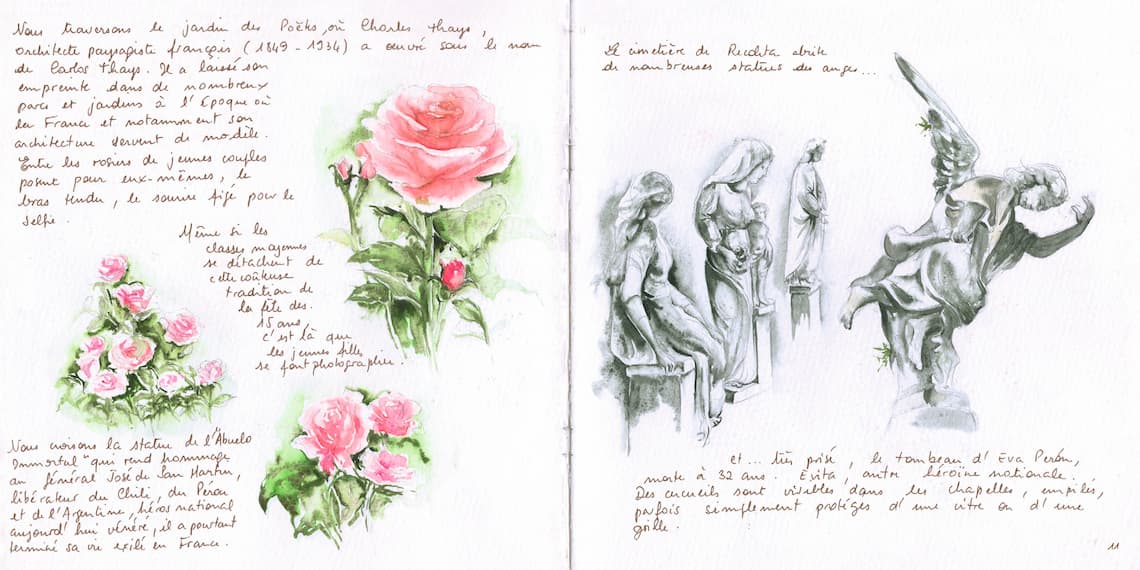 Nous traversons le jardin des Poètes, où Charles Thays,
architecte paysagiste français (1849 - 1934) a œuvré sous le nom
de Carlos Thays. Il a laissé son
empreinte dans de nombreux
parcs et jardins à l'époque où
la France et notamment son
architecture servent de modèle.
Entre les rosiers de jeunes couples
posent pour eux-mêmes, le
bras tendu, le sourire figé pour le
selfie.
Même si les
classes moyennes
se détachent de
cette coûteuse
tradition de
la fête des
15 ans,
c'est là que
les jeunes filles
se font photographier.
Nous croisons la statue de l'"Abuelo
Immortal" qui rend hommage
au Général José de San Martin,
libérateur du Chili, du Pérou
et de l'Argentine, héros national
aujourd'hui vénéré, il a pourtant
terminé sa vie exilé en France.
Le cimetière de Recoleta abrite
de nombreuses statues des anges...
et... très prisé, le tombeau d'Eva Perón,
morte à 32 ans. Evita, autre héroïne nationale.
Des cercueils sont visibles dans les chapelles, empilés,
parfois simplement protégés d'une vitre ou d'une
grille.
11